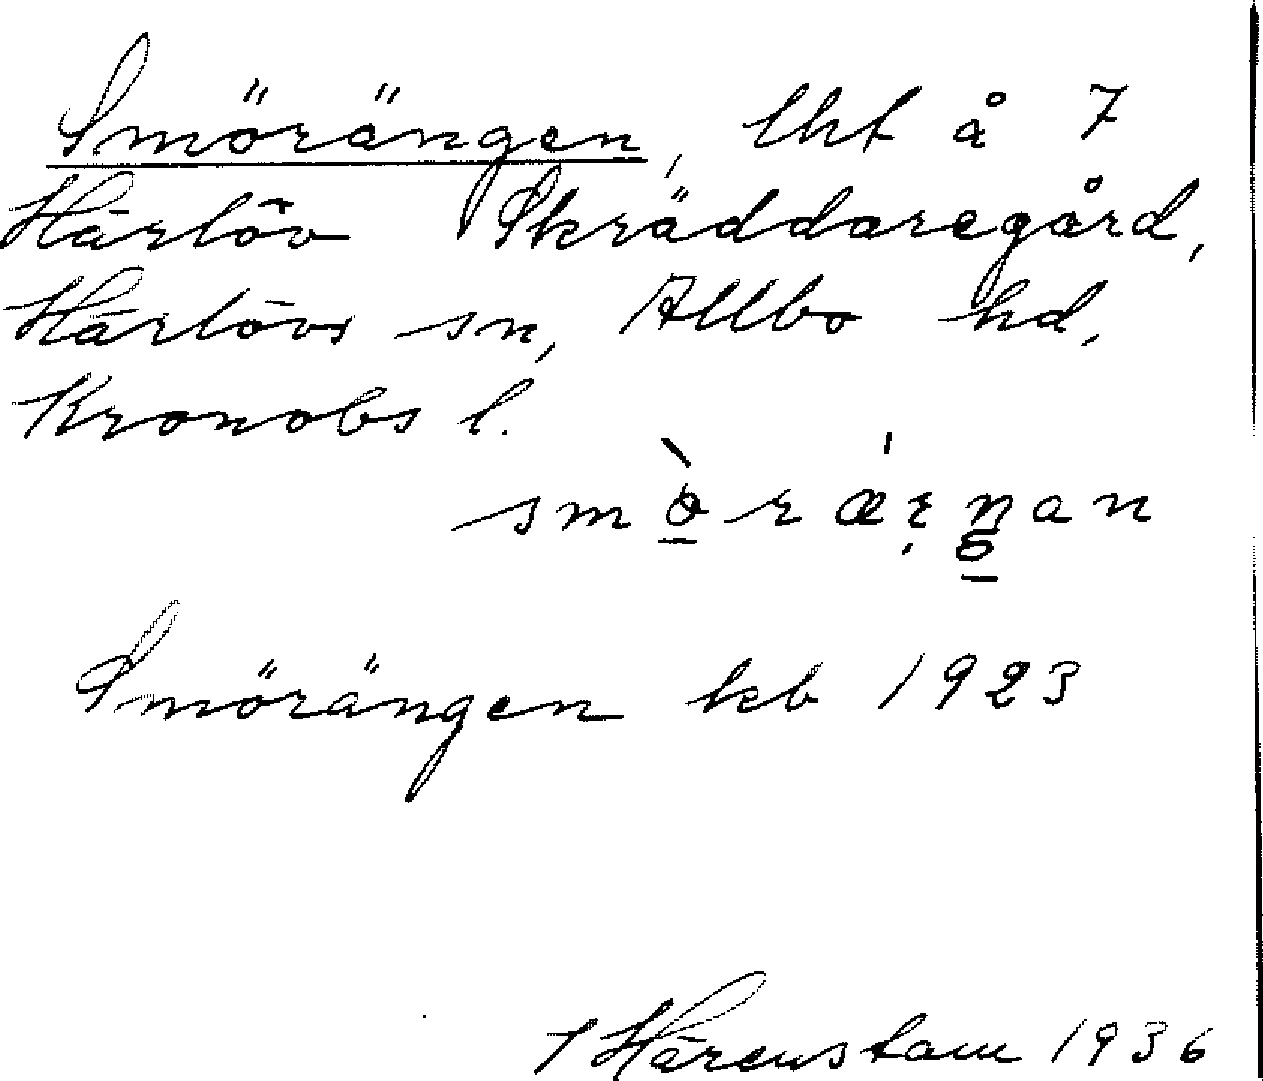 Smörängen, lht å 7
Härlöv Skräddaregård,
Härlövs sn, Allbo hd,
Kronobs l.
Smörängen kb 1923
Härenstam 1936